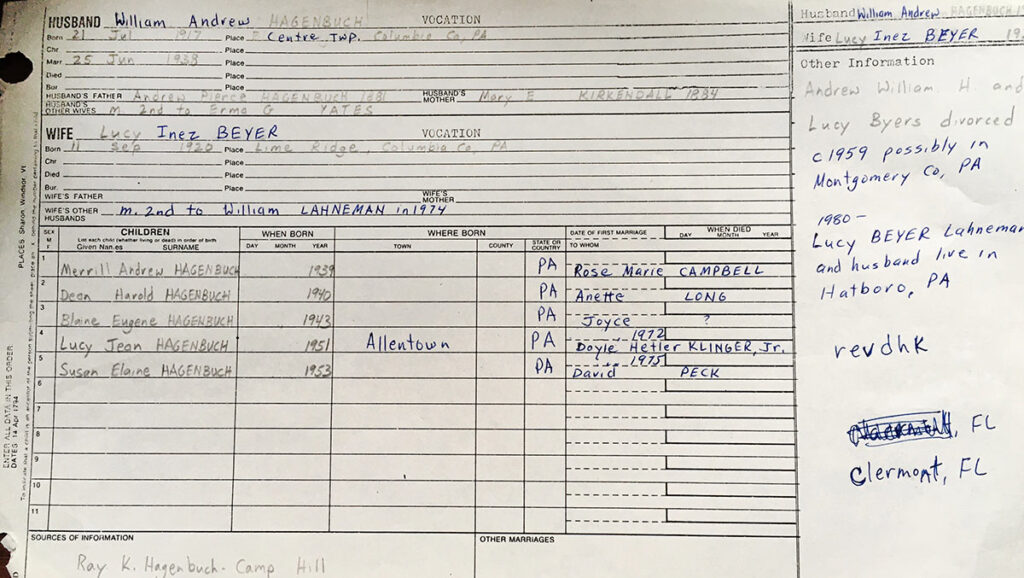 HUSBAND William Andrew HAGENBUCH VOCATION
Born 21 Jul 1917 Place Centre Twp. Columbia Co, PA
Chr. Place
Marr 25 Jun 1938 Place
Died Place
Bur Place
HUSBAND'S FATHER Andrew Pierce HAGENBUCH 1881 HUSBAND'S MOTHER Mary E KIRKENDALL 1884
HUSBAND'S OTHER WIVES m. 2nd to Erma G YATES
WIFE Lucy Inez BEYER VOCATION
Born 11 Sep 1920 Place Lime Ridge, Columbia Co, PA
Chr Place
Died Place
Bur. Place
WIFE'S FATHER WIFE'S MOTHER
WIFE'S OTHER HUSBANDS m. 2nd to William LAHNEMAN in 1974
SEX M F CHILDREN WHEN BORN WHERE BORN DATE OF FIRST MARRIAGE WHEN DIED
List each child (whether living or dead) in order of birth
Given Names SURNAME DAY MONTH YEAR TOWN COUNTY STATE OR COUNTRY TO WHOM DAY MONTH YEAR
1 Merrill Andrew HAGENBUCH 1939 PA Rose Marie CAMPBELL
2 Dean Harold HAGENBUCH 1940 PA Anette LONG
3 Blaine Eugene HAGENBUCH 1943 PA Joyce ?
4 Lucy Jean HAGENBUCH 1951 Allentown PA 1972 Doyle Hetler KLINGER, Jr.
5 Susan Elaine HAGENBUCH 1953 PA 1975 David PECK
6
7
8
9
10
11
SOURCES OF INFORMATION OTHER MARRIAGES
Ray K. Hagenbuch - Camp Hill
Husband William Andrew HAGENBUCH
Wife Lucy Inez BEYER
Other Information
Andrew William H. and
Lucy Byers divorced
c1959 possibly in
Montgomery Co, PA
1980 -
Lucy BEYER Lahneman
and husband live in
Hatboro, PA
revdhk
, FL
Clermont, FL
PLACES: Sharon, Windsor, Vt
ENTER ALL DATA IN THIS ORDER:
DATES: 14 Apr 1794